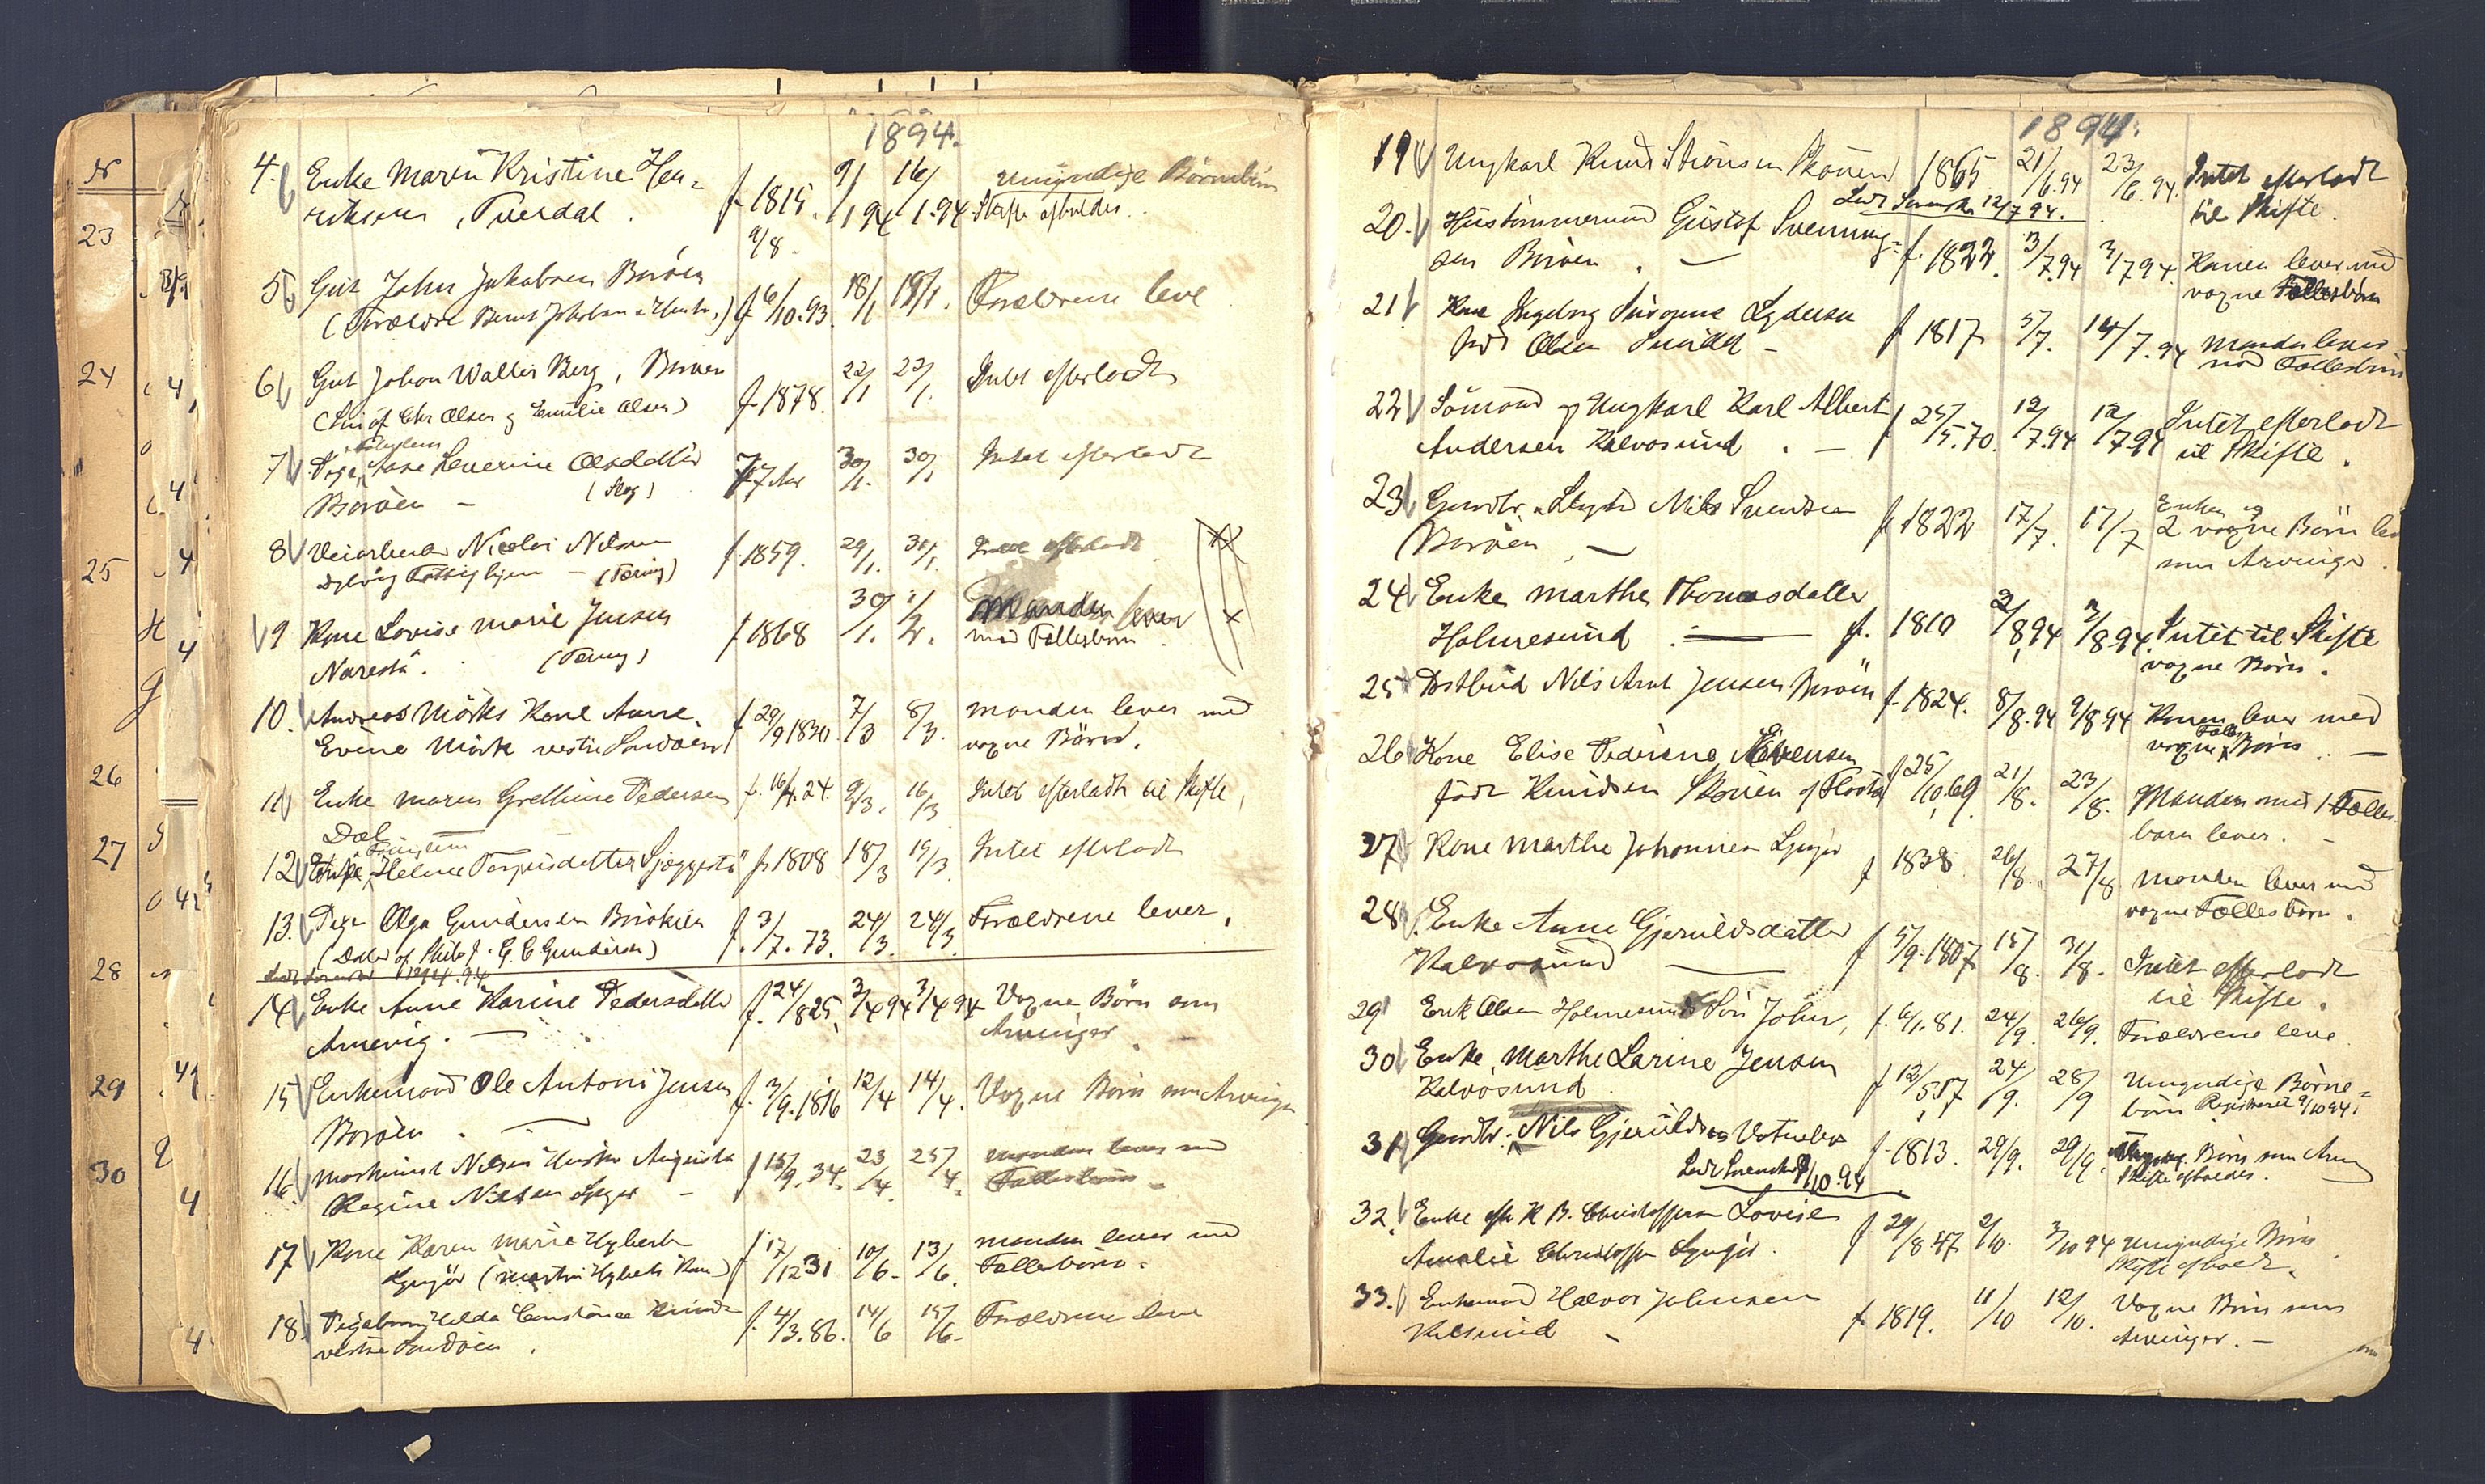 1894.
4. Enke Maren Kristine Hen-
riksen, Tverdal. f 1815. 9/1 94 16/1.94 Umyndige Børnebørn
Skifte afholdes.
9/8
5 Gut John Jakobsen Borøen
(Forældre Bernt Jakobsen & Hustru) f 6/10.93. 18/1 19/1. Forældrene leve
6 Gut Johan Walter Berg, Borøen
(Søn af Chr Olsen og Emilie Olsen) f 1878. 22/1 23/1. Intet efterladt
7 Pige, Aase Severine Olsdatter
Borøen - 77 Aar 30/1. 30/1 Intet efterladt
8 Veiarbeider Nicolai Nilsen
Dybvåg Fattighjem - (Tæring) f. 1859. 29/1. 30/1. Intet efterladt
9 Kone Lovise Marie Jensen
Narestø. (Tæring) f 1868 30/1. 1/2. Manden lever
med Fællesbørn.
10. Andreas Mørks Kone Anne
Evine Mørk vestre Sandøen f 29/9 1830. 7/3 8/3. Manden lever med
vogne Børn.
11 Enke Maren Grethine Pedersen f. 16/4.24. 9/3. 16/3 Intet efterladt til Skifte,
12 Enke Helene Terjusdatter Sjæggestø f. 1808 18/3 19/3 Intet efterladt
13. Pige Olga Gundersen Borøkilen
(Datter af Skibsf. G. C Gundersen) f. 3/7.73. 24/3. 24/3. Forældrene lever.
14 Enke Anne Karine Pedersdatter
Arnevig. - f. 24/8 25, 3/4 94 3/4 94 Vogne Børn som
Arvinger. -
15 Enkemand Ole Antoni Jensen
Borøen. f. 3/9.1816 12/4 14/4. Vogne Børn som Arvinger
16. Maskinist Nilsens Hustru Augusta
Regine Nilsen Lyngør - f 15/9.34. 23/4. 25/4. Manden lever med
Fællesbørn -
17 Kone Karen Marie Nyberth
Lyngør (Martin Nyberts Kone) f 17/12 31 10/6- 13/6. Manden lever med
Fællesbørn.
18. Pigebarn Hilda Constance Knudsen
vestre Sandøen. f. 4/3.86. 14/6 15/6- Forældrene leve
1894.
19 Ungkarl Knud Stiansen Skonen 1865. 21/6.94 23/6.94. Intet efterladt
til Skifte.
12/7 94.
20. Hustømmermand Gustaf Svenning-
sen Borøen. - f. 1822. 3/7.94 3/7 94. Konen lever med
vogne Fællesbørn
21 Kone Ingeborg Lydersen
født Olsen - f 1817 5/7. 14/7.94 Manden lever
med Fællesbørn
22 Sømand og Ungkarl Karl Albert
Andersen Kalvøsund. - f 25/5.70. 12/7.94 12/7 94 Intet efterladt
til Skifte.
23 Gaardbr. & Skipper Nils Svendsen
Borøen - f 1822 17/7. 17/7 Enken og
2 vogne Børn lever
som Arvinger.
24 Enke Marthe Thomasdatter
Holmesund. f. 1810 2/8,94 2/8 94. Intet til Skifte
vogne Børn.
25 Postbud Nils Arnt Jensen Borøen f. 1824. 8/8.94 9/8 94 Konen lever med
vogne Fælles Børn. -
26 Kone Elise Pederine Evensen
født Knudsen Skonen f 25/10,69. 21/8. 23/8. Manden med 1 Fælles-
barn lever. -
27 Kone Marthe Johannesen Lyngør f 1838 26/8. 27/8. Manden lever med
vogne Fællesbørn.
28. Enke Anne Gjeruldsdatter
Kalvøsund f 5/9.1807 15/8. 31/8. Intet efterladt
til Skifte.
29 Erik Olsen Holmesunds Søn John, f. 6/1.81. 24/9. 26/9. Forældrene leve
30 Enke Marthe Larine Jensen
Kalvøsund f 12/5.17 24/9. 28/9 Umyndige Børne-
børn Registreret 9/10 94.
31 Gaardbr. Nils Gjeruldsen Votneberg f. 1813. 29/9. 29/9. Børn som Arving
Skifte afholdes.
9/10.94
32. Enke eft K B. Christoffersen Lovise
Amalie Christoffersen Lyngør. f 29/8.47 2/10. 3/10 94 Umyndige Børn
Skifte afholdt.
33. Enkemand Halvor Johnsen
Kilsund - f 1819. 11/10 12/10. Vogne Børn som
Arvinger. -
23
24
25
26
27
28
29
30